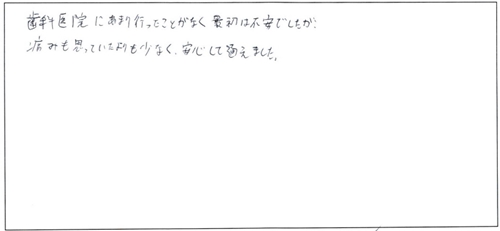 歯科医院にあまり行ったことがなく最初は不安でしたが、
痛みも思っていたよりも少なく、安心して通えました。